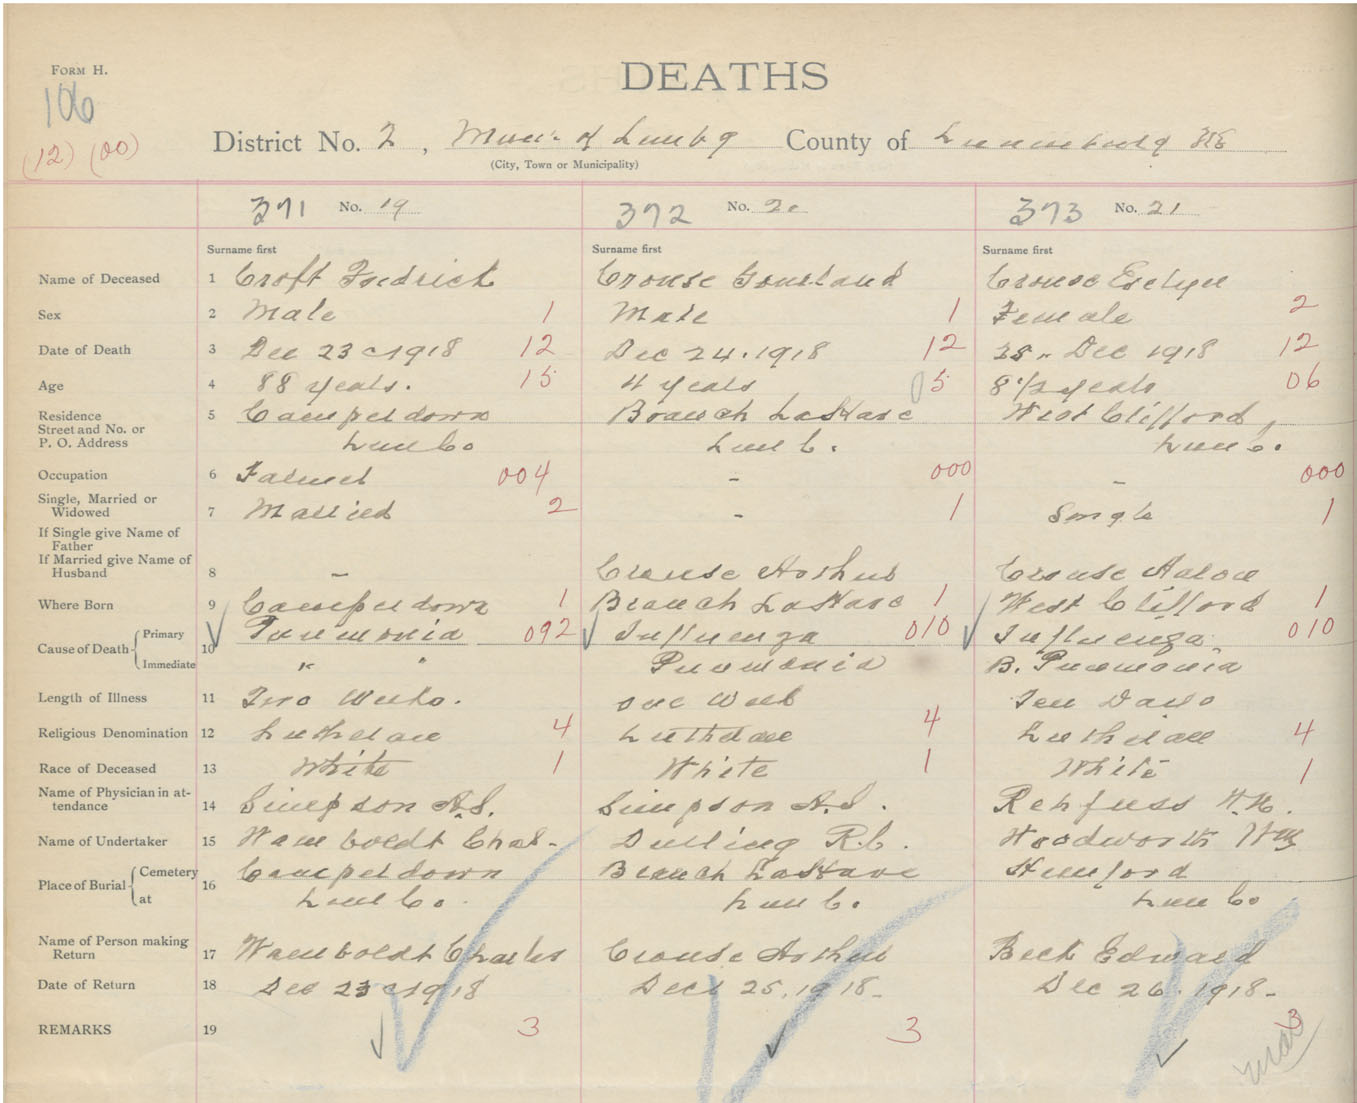 FORM H.
DEATHS
106
(12) (00)
District No. 2, Mun. of Lunbg County of Lunenburg 318
(City, Town or Municipality)
371 No. 19 372 No. 20 373 No. 21
Surname first Surname first Surname first
Name of Deceased 1 Croft Fredrick Crouse Crouse Evelyn
Sex 2 Male 1 Male 1 Female 2
Date of Death 3 Dec 23 1918 12 Dec 24. 1918 12 Dec 1918 12
Age 4 88 years. 15 4 years 05 8 1/2 years 06
Residence 5 Camperdown Branch LaHave West Clifford,
Street and No. or
P. O. Address Lun Co Lun C. Lun Co.
Occupation 6 Farmer 004 - 000 - 000
Single, Married or
Widowed 7 Married 2 - 1 Single 1
If Single give Name of
Father
If Married give Name of
Husband 8 - Crouse Arthur Crouse Aaron
Where Born 9 Camperdown 1 Branch LaHave 1 West Clifford 1
Cause of Death { Primary 10 Pneumonia 092 Influenza 010 Influenza 010
Immediate " " Pneumonia B. Pneumonia
Length of Illness 11 Two Weeks. one Week Ten Days
Religious Denomination 12 Lutheran 4 Lutheran 4 Lutheran 4
Race of Deceased 13 White 1 White 1 White 1
Name of Physician in at-
tendance 14 Simpson A.S. Simpson A.S. Rehfuss W.N.
Name of Undertaker 15 Wamboldt Chas. Durling R.C. Woodworth Wm
Place of Burial { Cemetery 16 Camperdown Branch LaHave Hemford
at Lun Co. Lun C. Lun Co
Name of Person making
Return 17 Wamboldt Charles Crouse Arthur Beck Edward
Date of Return 18 Dec 23 1918 Dec 25. 1918- Dec 26. 1918-
REMARKS 19 3 3 3